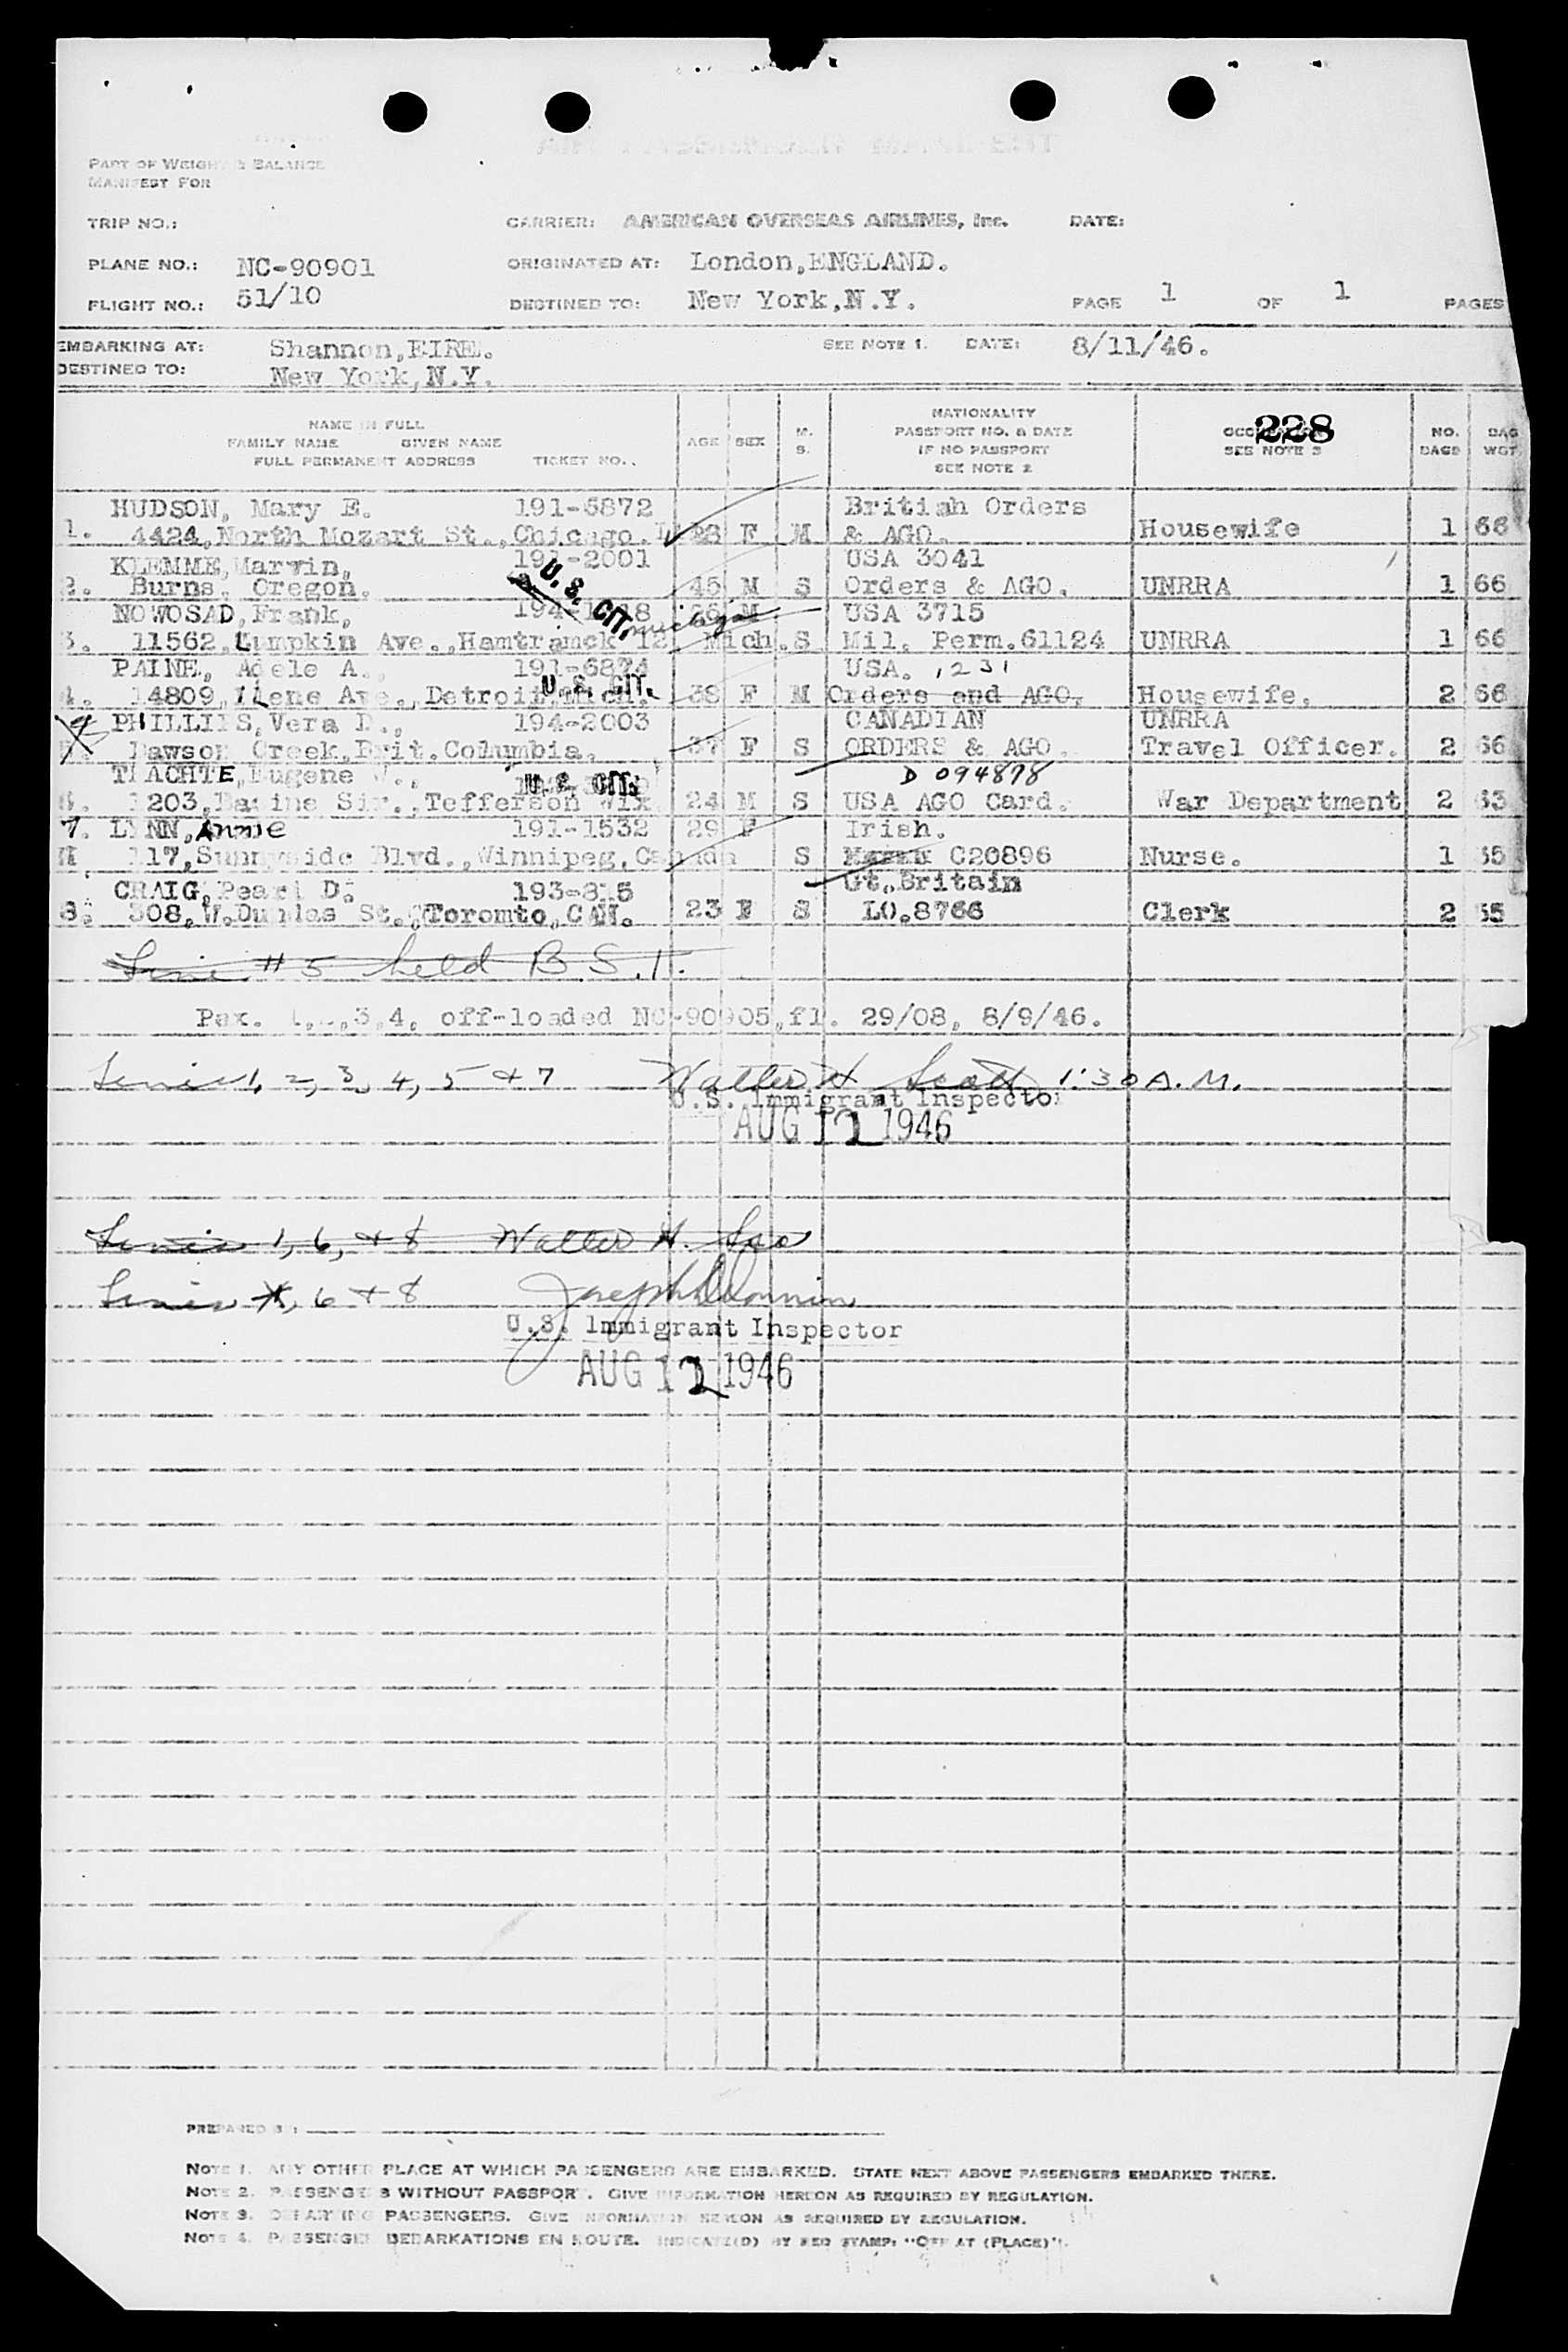 PART OF WEIGHT & BALANCE
MANIFEST FOR
TRIP NO.:
CARRIER: AMERICAN OVERSEAS AIRLINES, Inc.
DATE:
PLANE NO.: NC-90901
ORIGINATED AT: London,ENGLAND.
FLIGHT NO.: 51/10
DESTINED TO: New York,N.Y.
PAGE 1 OF 1 PAGES
EMBARKING AT: Shannon,EIRE.
SEE NOTE 1. DATE: 8/11/46.
DESTINED TO: New York,N.Y.
NAME IN FULL
FAMILY NAME GIVEN NAME
FULL PERMANENT ADDRESS TICKET NO.
AGE SEX M. S.
NATIONALITY
PASSPORT NO. & DATE
IF NO PASSPORT
SEE NOTE 2
228
SEE NOTE 3
NO. BAGS
BAG WGT.
HUDSON, Mary E. 191-6872 British Orders
1. 4424,North Mozart St.,Chicago. 28 F M & AGO. Housewife 1 66
KLEMME,Marvin, 191-2001 USA 3041
2. Burns. Oregon. 45 M S Orders & AGO. UNRRA 1 66
U. S. CIT.
NOWOSAD,Frank, 26 M USA 3715
michigan
3. 11562,Lumpkin Ave.,Hamtramck 12 Mich. S Mil. Perm.61124 UNRRA 1 66
PAINE, Adele A., 191-6874 USA. 1231
4. 14809,ILene Ave.,Detroit,Mich. 38 F M Orders and AGO. Housewife. 2 66
U. S. CIT.
PHILLIPS,Vera D., 194-2003 CANADIAN UNRRA
Dawson Creek,Brit.Columbia. 37 F S ORDERS & AGO. Travel Officer. 2 66
TLACHTE,Eugene W., U.S. CIT. D 094878
6. 1203, Tefferson Wix. 24 M S USA AGO Card. War Department 2 63
7. LYNN,Annie 191-1532 29 F Irish.
117,Sunnyside Blvd.,Winnipeg,Canada S C20896 Nurse. 1 55
CRAIG,Pearl D. 193-815 Gt.Britain
8. 308,W.Dundas St.,Toromto,CAN. 23 F S LO.8766 Clerk 2 55
Line #5 held B.S.I.
Pax. 1,2,3,4, off-loaded NC-90905,fl. 29/08, 8/9/46.
Lines 1, 2, 3, 4, 5 & 7 Walter H Scott 1:30 A.M.
U.S. Immigrant Inspector
AUG 12 1946
Lines 1, 6, & 8 Walter H. Sco
Lines 1, 6 & 8 Joseph
U.S. Immigrant Inspector
AUG 12 1946
PREPARED BY:
NOTE 1. ANY OTHER PLACE AT WHICH PASSENGERS ARE EMBARKED. STATE NEXT ABOVE PASSENGERS EMBARKED THERE.
NOTE 2. PASSENGERS WITHOUT PASSPORT. GIVE INFORMATION HEREON AS REQUIRED BY REGULATION.
NOTE 3. DEPARTING PASSENGERS. GIVE INFORMATION HEREON AS REQUIRED BY REGULATION.
NOTE 4. PASSENGER DEBARKATIONS EN ROUTE. INDICATE(D) BY RED STAMP: "OFF AT (PLACE)".